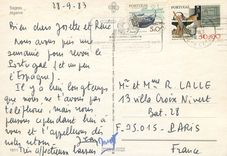 Sagres
Algarve
28-9-83
PORTUGAL
PORTUGAL
5.00
30$00
Bien chers Josette et René
Nous avons pris une
semaine pour revoir le
Portugal (et un peu
l'Espagne).
Il y a bien longtemps
que nous n'avons pas
téléphoné, mais nous
pensons cependant bien à
vous et t'appellerons dès
notre retour.
Très affectueux baisers
Mr et Mme R. LALLE
13 villa Croix Nivert
Bat. 28
F. 75.015 - PARIS
France